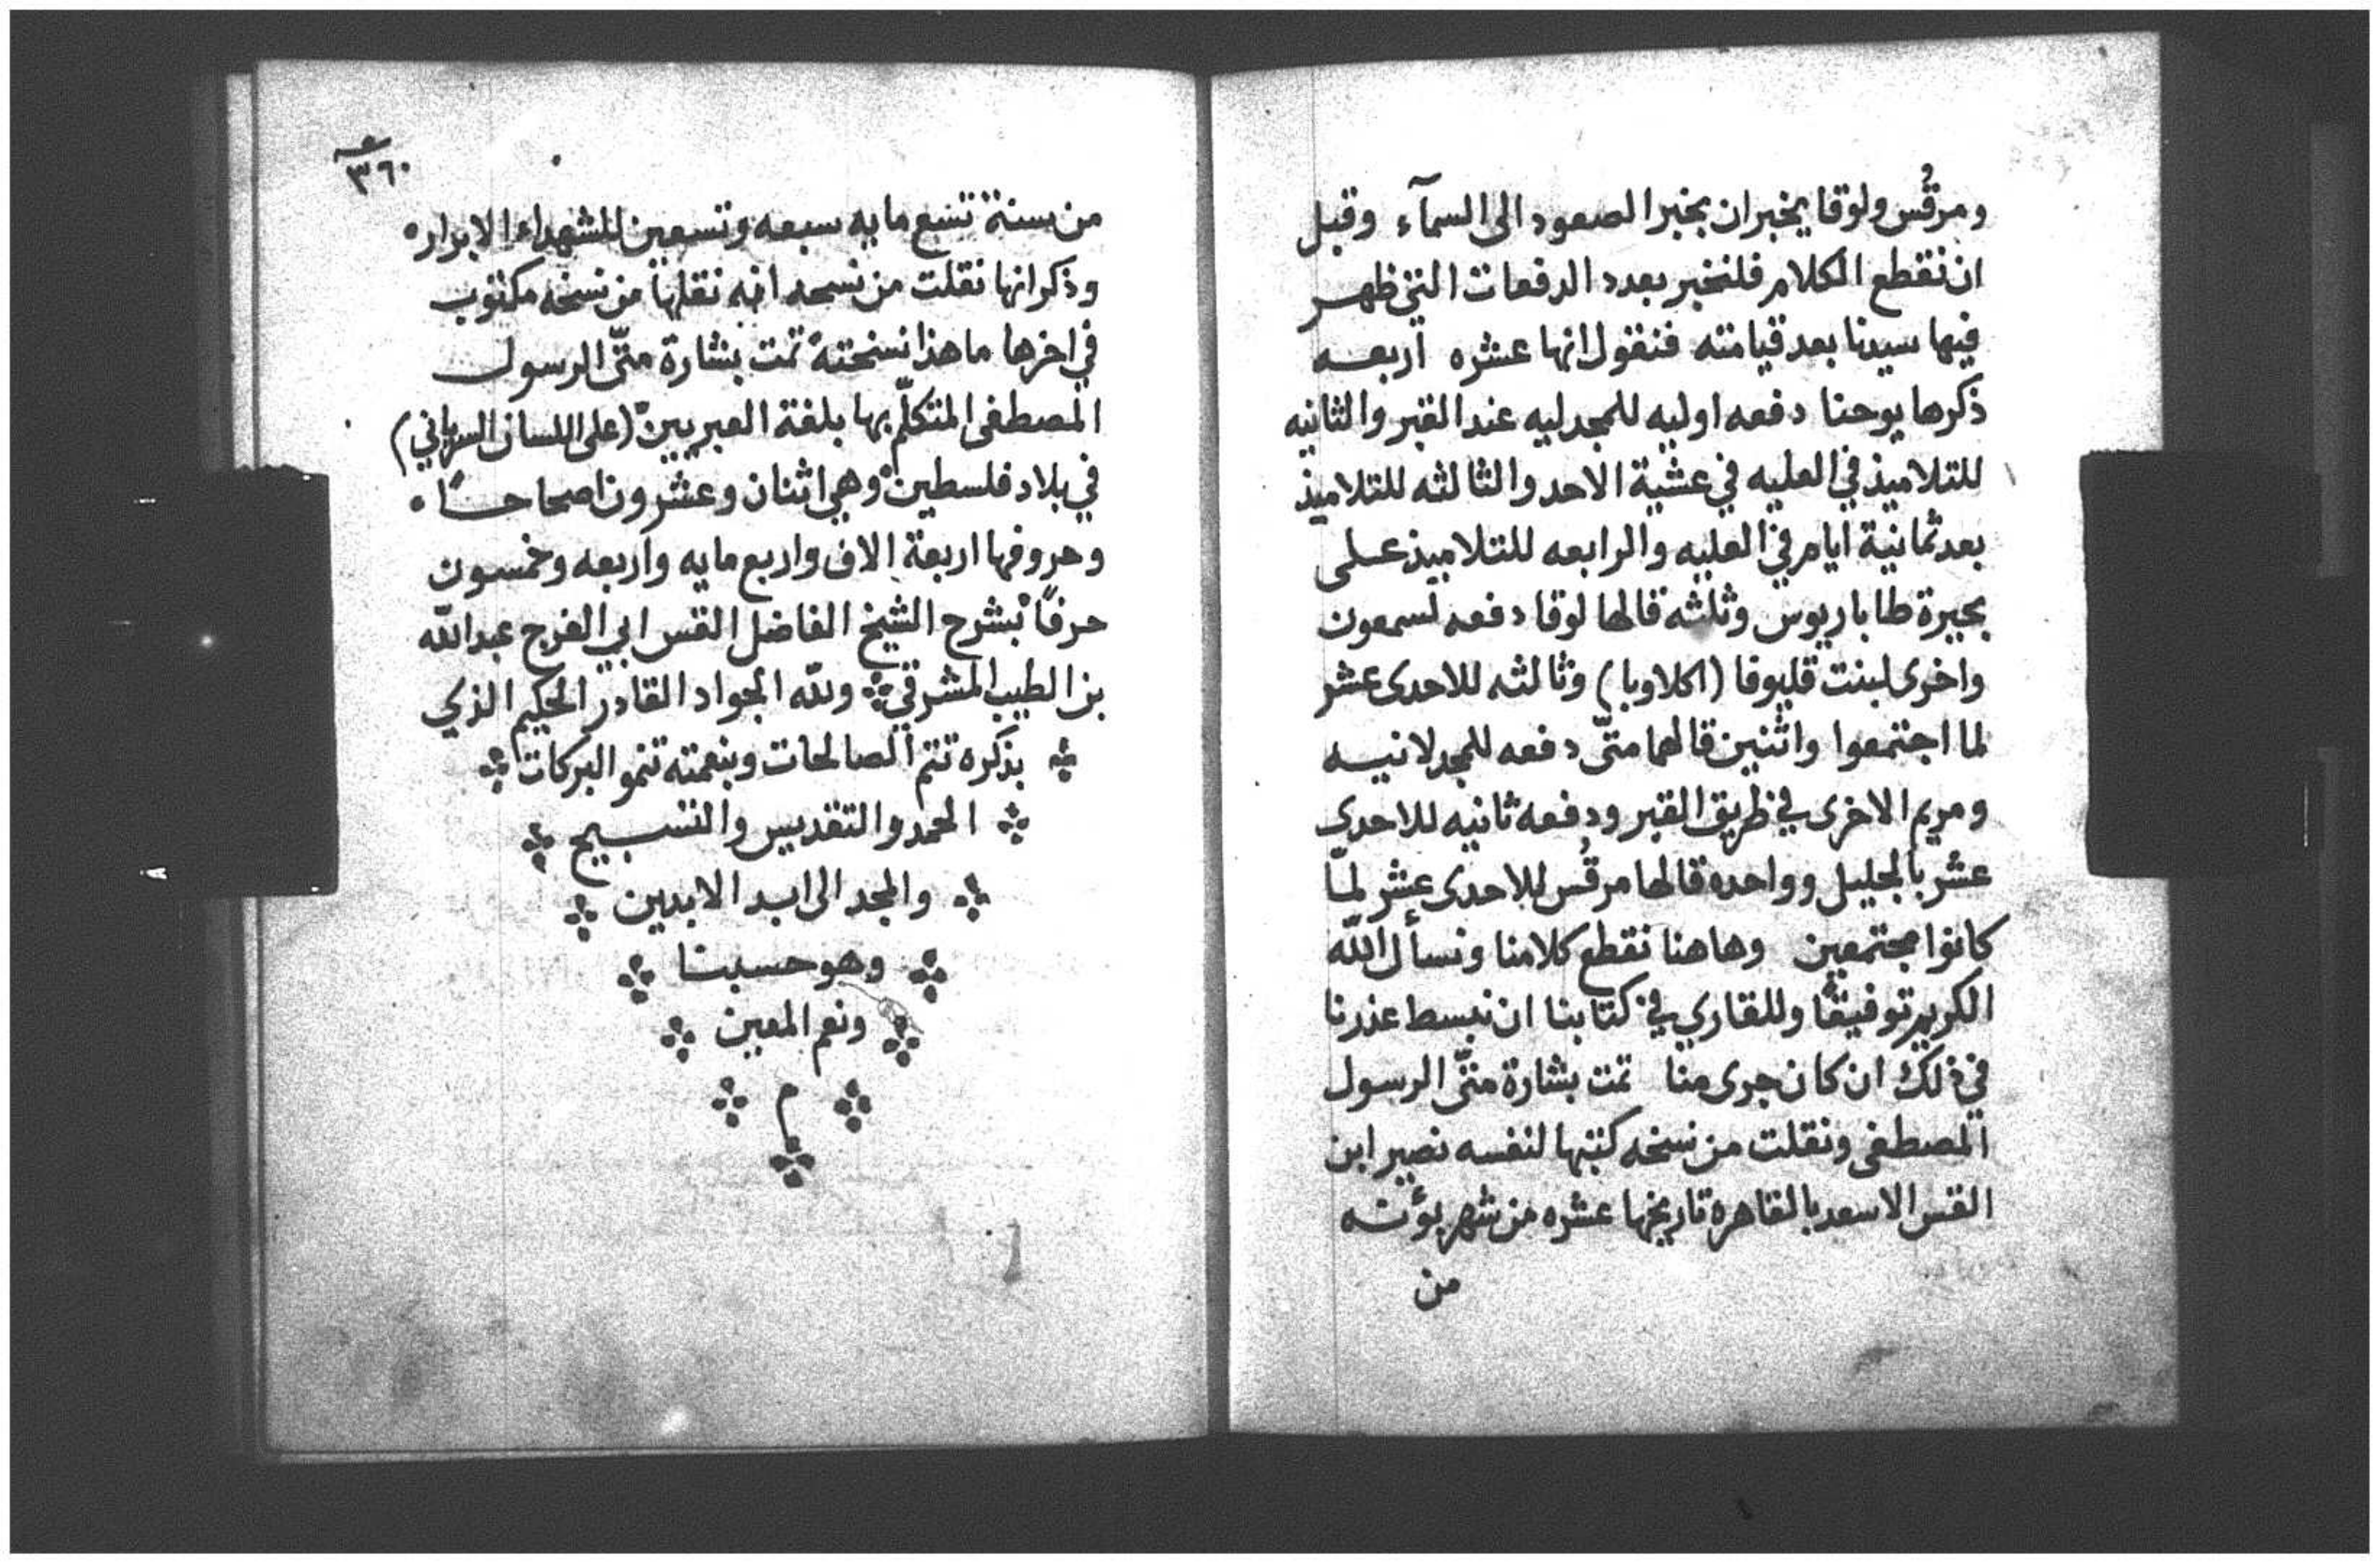 ومرقُس ولوقا يخبران بخبر الصعود الى السمآء وقبل
ان نقطع الكلام فلنخبر بعدد الدفعات التي ظهر
فيها سيدنا بعد قيامته فنقول انها عشره أربعه
ذكرها يوحنا دفعه اوليه للمجدليه عند القبر والثانيه
للتلاميذ في العليه في عشية الاحد والثالثه للتلاميذ
بعد ثمانية ايام في العليه والرابعه للتلاميذ على
بحيرة طاباريوس وثلثه قالها لوقا دفعه لسمعون
واخرى لبنت قليوفا (اكلاوبا) وثالثه للاحدى عشر
لما اجتمعوا واثنين قالهما متّى دفعه للمجدلانيه
ومريم الاخرى في طريق القبر ودفعه ثانيه للاحدى
عشر بالجليل وواحده قالها مرقُس للاحدى عشر لمّا
كانوا مجتمعين وهاهنا نقطع كلامنا ونسأل الله
الكريم توفيقًا وللقاري في كتابنا ان نبسط عذرنا
في ذلك ان كان جرى منا تمت بشارة متّى الرسول
المصطفى ونقلت من نسخه كتبها لنفسه نصير ابن
القس الاسعد بالقاهرة تاريخها عشره من شهر بؤنه
من
٣٦٠
من سنة تسع مايه سبعه وتسعين للشهداء الابرار
وذكر انها نقلت من نسخه انه نقلها من نسخه مكتوب
في اخرها ما هذا نسخته تمت بشارة متّى الرسول
المصطفى المتكلّم بها بلغة العبريين (على اللسان السرياني)
في بلاد فلسطين وهي اثنان وعشرون اصحاحًا
وحروفها اربعة الاف واربع مايه واربعه وخمسون
حرفًا بشرح الشيخ الفاضل القس ابي الفرج عبدالله
بن الطيب المشرقي ولله الجواد القادر الحكيم الذي
بذكره تتم الصالحات وبنعمته تنمو البركات
الحمد والتقديس والتسبيح
والمجد الى ابد الابدين
وهو حسبنا
ونعم المعين
م